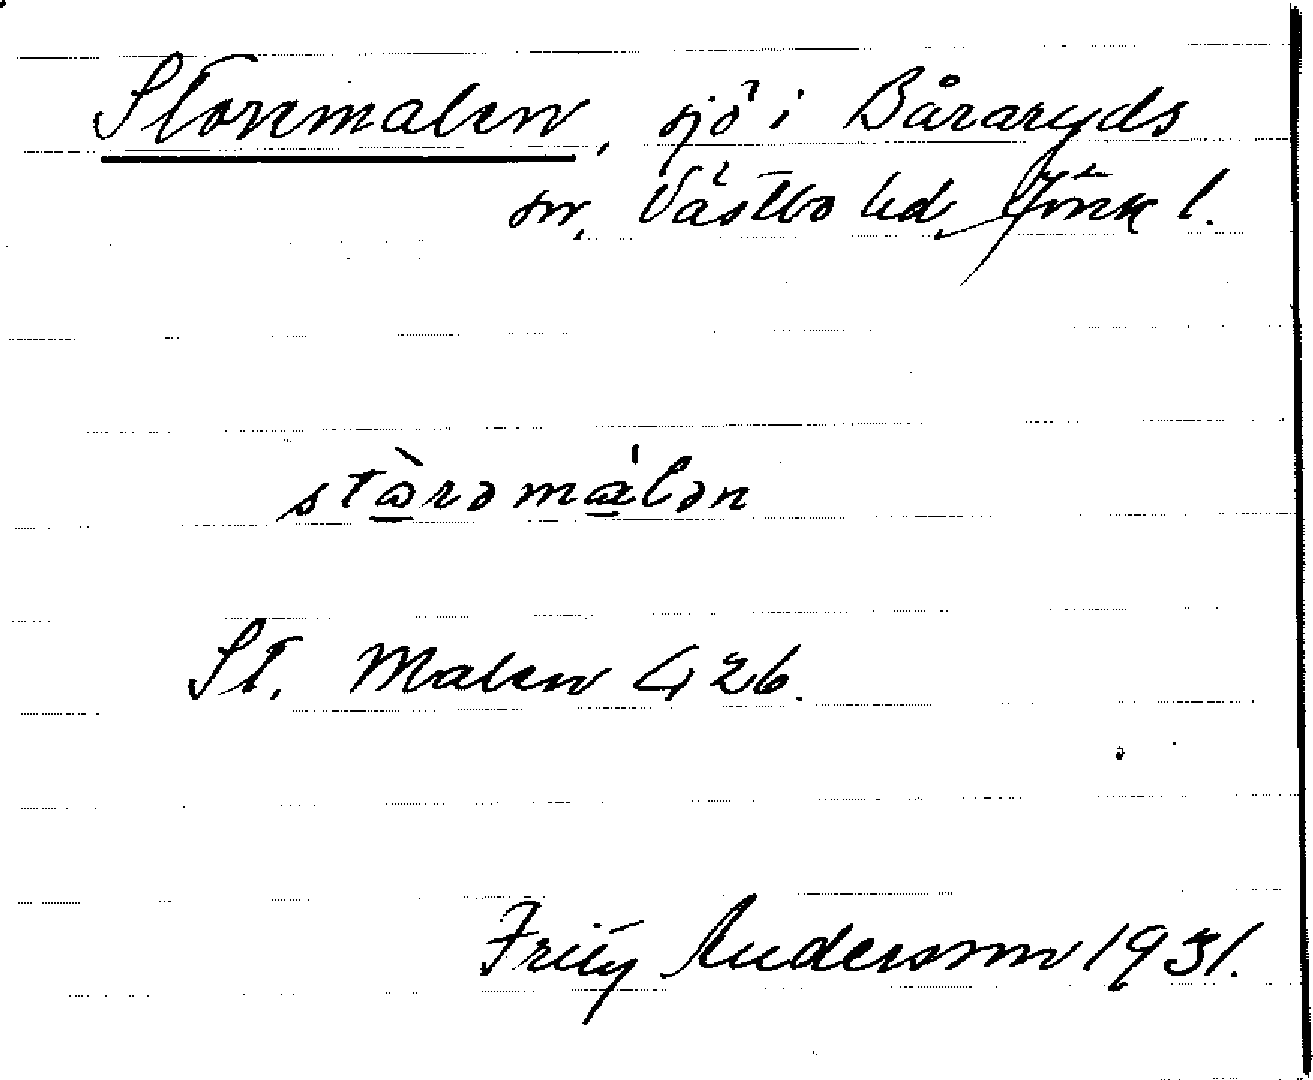 Storemalen, sjö i Båraryds
sn, Västbo hd, Jönk l.
stòrəmálən
St. Malen G 26.
Fritz Andersson 1931.